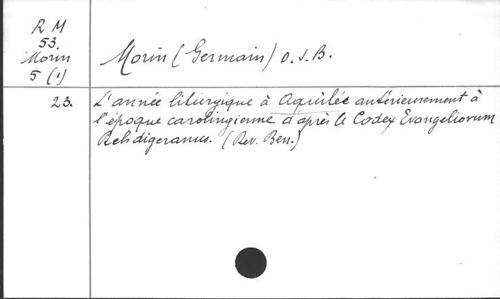 R M
53.
Morin
5 (1)
Morin (Germain) O.S.B.
23.
L'année liturgique à Aquilée antérieurement à
l'époque carolingienne d'après le Codex Evangeliorum
Rehdigeranus. (Rev. Ben.)